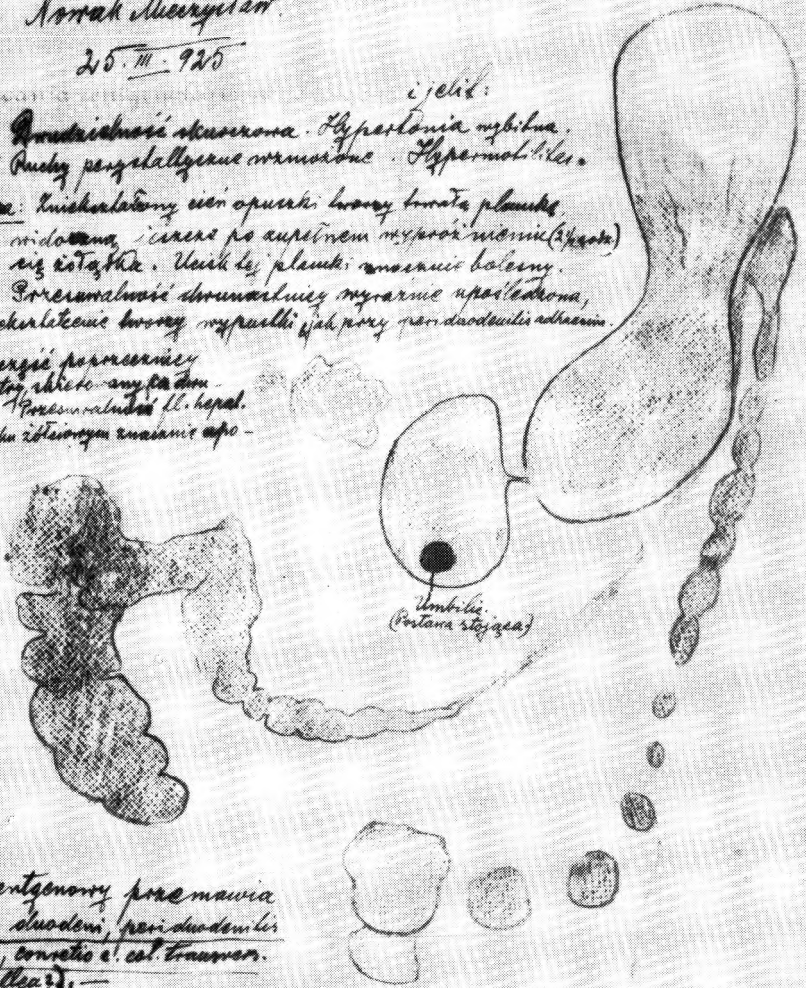 Nowak Mieczysław.
25. III. 925
i jelit:
Dwudzielność skurczowa. Hypertonia wybitna.
Ruchy perystaltyczne wzmożone. Hypermotilitas.
Zniekształcony cień opuszki tworzy trwałą plamkę,
widoczną jeszcze po zupełnem wypróżnieniu (2½ godz.)
się żołądka. Ucisk tej plamki znacznie bolesny.
Przesuwalność dwunastnicy wyraźnie upośledzona,
tworzy wypustki jak przy periduodenitis adhaesiva.
część poprzecznicy
Przesuwalność fl. hepat.
żółciowym znacznie upo-
Umbilic.
(Postawa stojąca)
entgenowy przemawia
duodeni, periduodenitis
, concretio c. col. transvers.